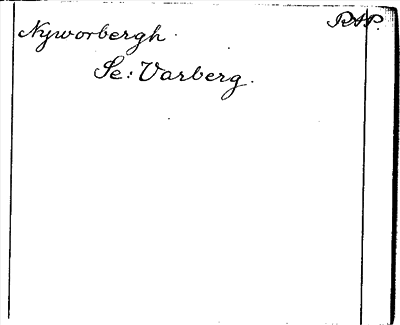 Nyworbergh.
Se: Varberg.